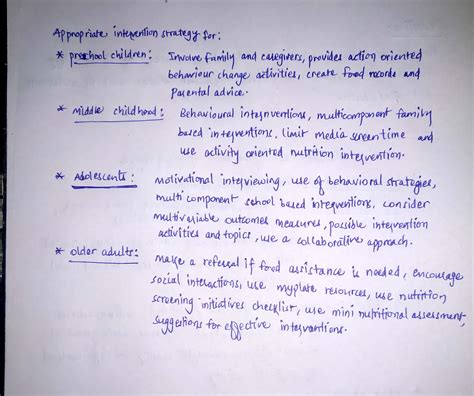 Appropriate intervention strategy for:
* preschool children: Involve family and caregivers, provides action oriented
behaviour change activities, create food records and
Parental advice.
* Middle childhood: Behavioural intervnventions, multicomponent family
based interventions, limit media screentime and
use activity oriented nutrition intervention.
* Adolescents: motivational interviewing, use of behavioral strategies,
multi component school based interventions, consider
multivariable outcomes measures, possible intervention
activities and topics, use a collaborative approach.
* older adults: make a referral if food assistance is needed, encourage
social interactions, use myplate resources, use nutrition
screening initiatives checklist, use mini nutritional assessment,
suggestions for effective interventions.